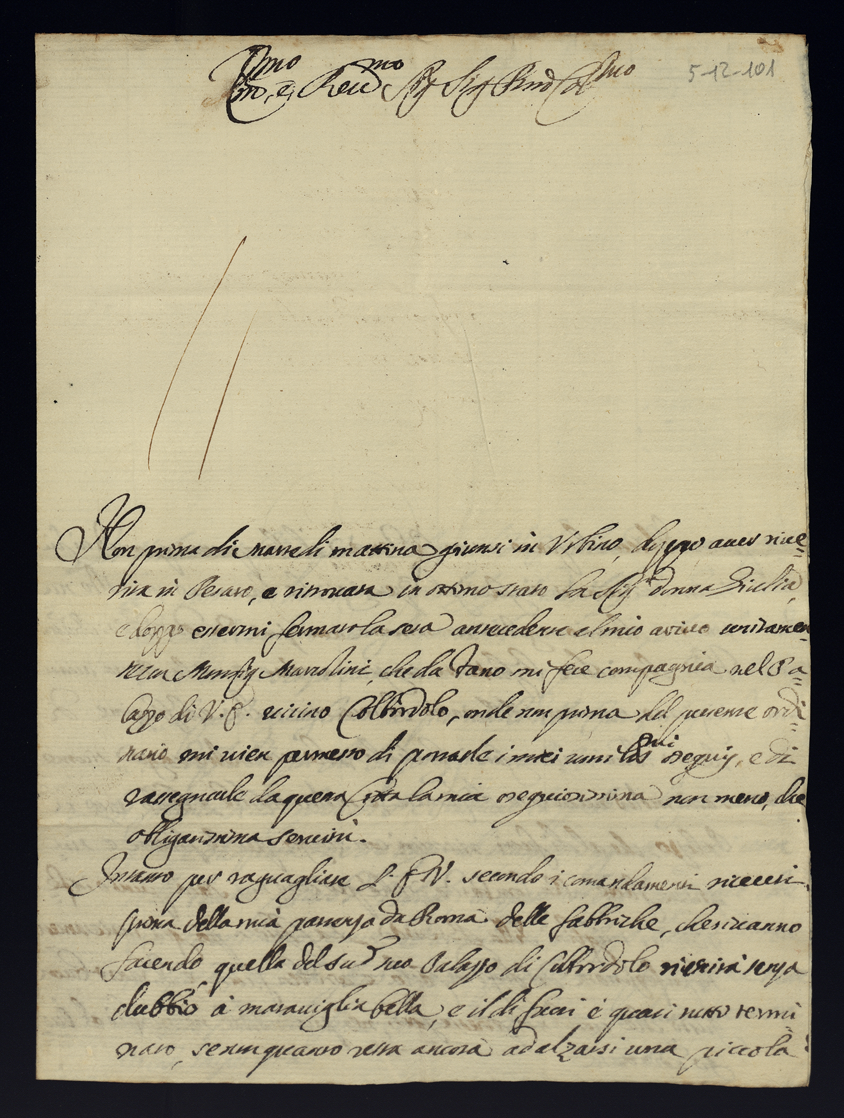 5-12-101
Em̃o, e Reumo Sig Sig Pñro Colmo
Non prima di Martedi mattina giunsi in Vrbino, doppo auer riue=
rita in Pesaro, e ritrouata in ottimo stato la Sigra donna Giulia,
e doppo essermi fermato la sera antecedente al mio arriuo unitamen
te con Monsig Marcolini, che da Fano mi fece compagnia nel Pa=
lazzo di V. E. uicino Colbordolo, onde non prima del presente ordi=
nario mi uien permesso di portarle i miei umilissmi ossequij, e di
rassegnarle da questa Città la mia ossequiosissima non meno, che
obligatissima seruitù.
Intanto per raguagliare L' E V. secondo i comandamenti riceuuti
prima della mia partenza da Roma delle fabbriche, che si uanno
facendo quella del suo Palazzo di Colbordolo riescirà senza
dubbio à marauiglia bella, e il di fuori è quasi tutto termi
nato, se non quanto resta ancora ad alzarsi una piccola